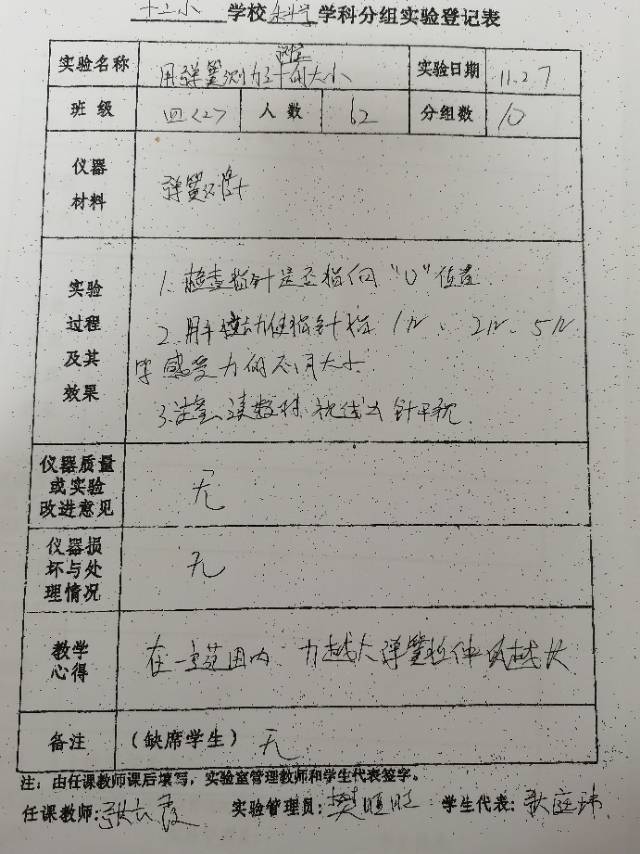 十三小 学校 科学 学科分组实验登记表
实验名称 用弹簧测力计测量力的大小 实验日期 11.27
班 级 四<2> 人 数 62 分组数 10
仪器
材料
弹簧测力计
实验
过程
及其
效果
1. 检查指针是否指向“0”位置
2. 用手拉动使指针指 1N、2N、5N
感受力的不同大小
3. 读数时 视线与针平视.
仪器质量
或实验
改进意见
无
仪器损
坏与处
理情况
无
教学
心得
在一定范围内 力越大弹簧拉伸的越长
备注 (缺席学生) 无
注：由任课教师课后填写，实验室管理教师和学生代表签字。
任课教师: 张 霞 实验管理员: 樊恒旺 学生代表: 庭